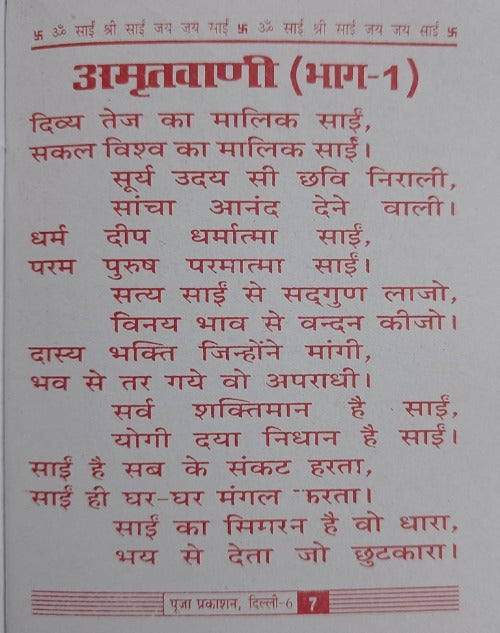 卐 ॐ साईं श्री साईं जय जय साईं 卐 ॐ साईं श्री साईं जय जय साईं 卐
अमृतवाणी (भाग-1)
दिव्य तेज का मालिक साईं,
सकल विश्व का मालिक साईं।
सूर्य उदय सी छवि निराली,
सांचा आनंद देने वाली।
धर्म दीप धर्मात्मा साईं,
परम पुरुष परमात्मा साईं।
सत्य साईं से सद्गुण लाजो,
विनय भाव से वन्दन कीजो।
दास्य भक्ति जिन्होंने मांगी,
भव से तर गये वो अपराधी।
सर्व शक्तिमान है साईं,
योगी दया निधान है साईं।
साईं है सब के संकट हरता,
साईं ही घर-घर मंगल करता।
साईं का सिमरन है वो धारा,
भय से देता जो छुटकारा।
पूजा प्रकाशन, दिल्ली-6 7